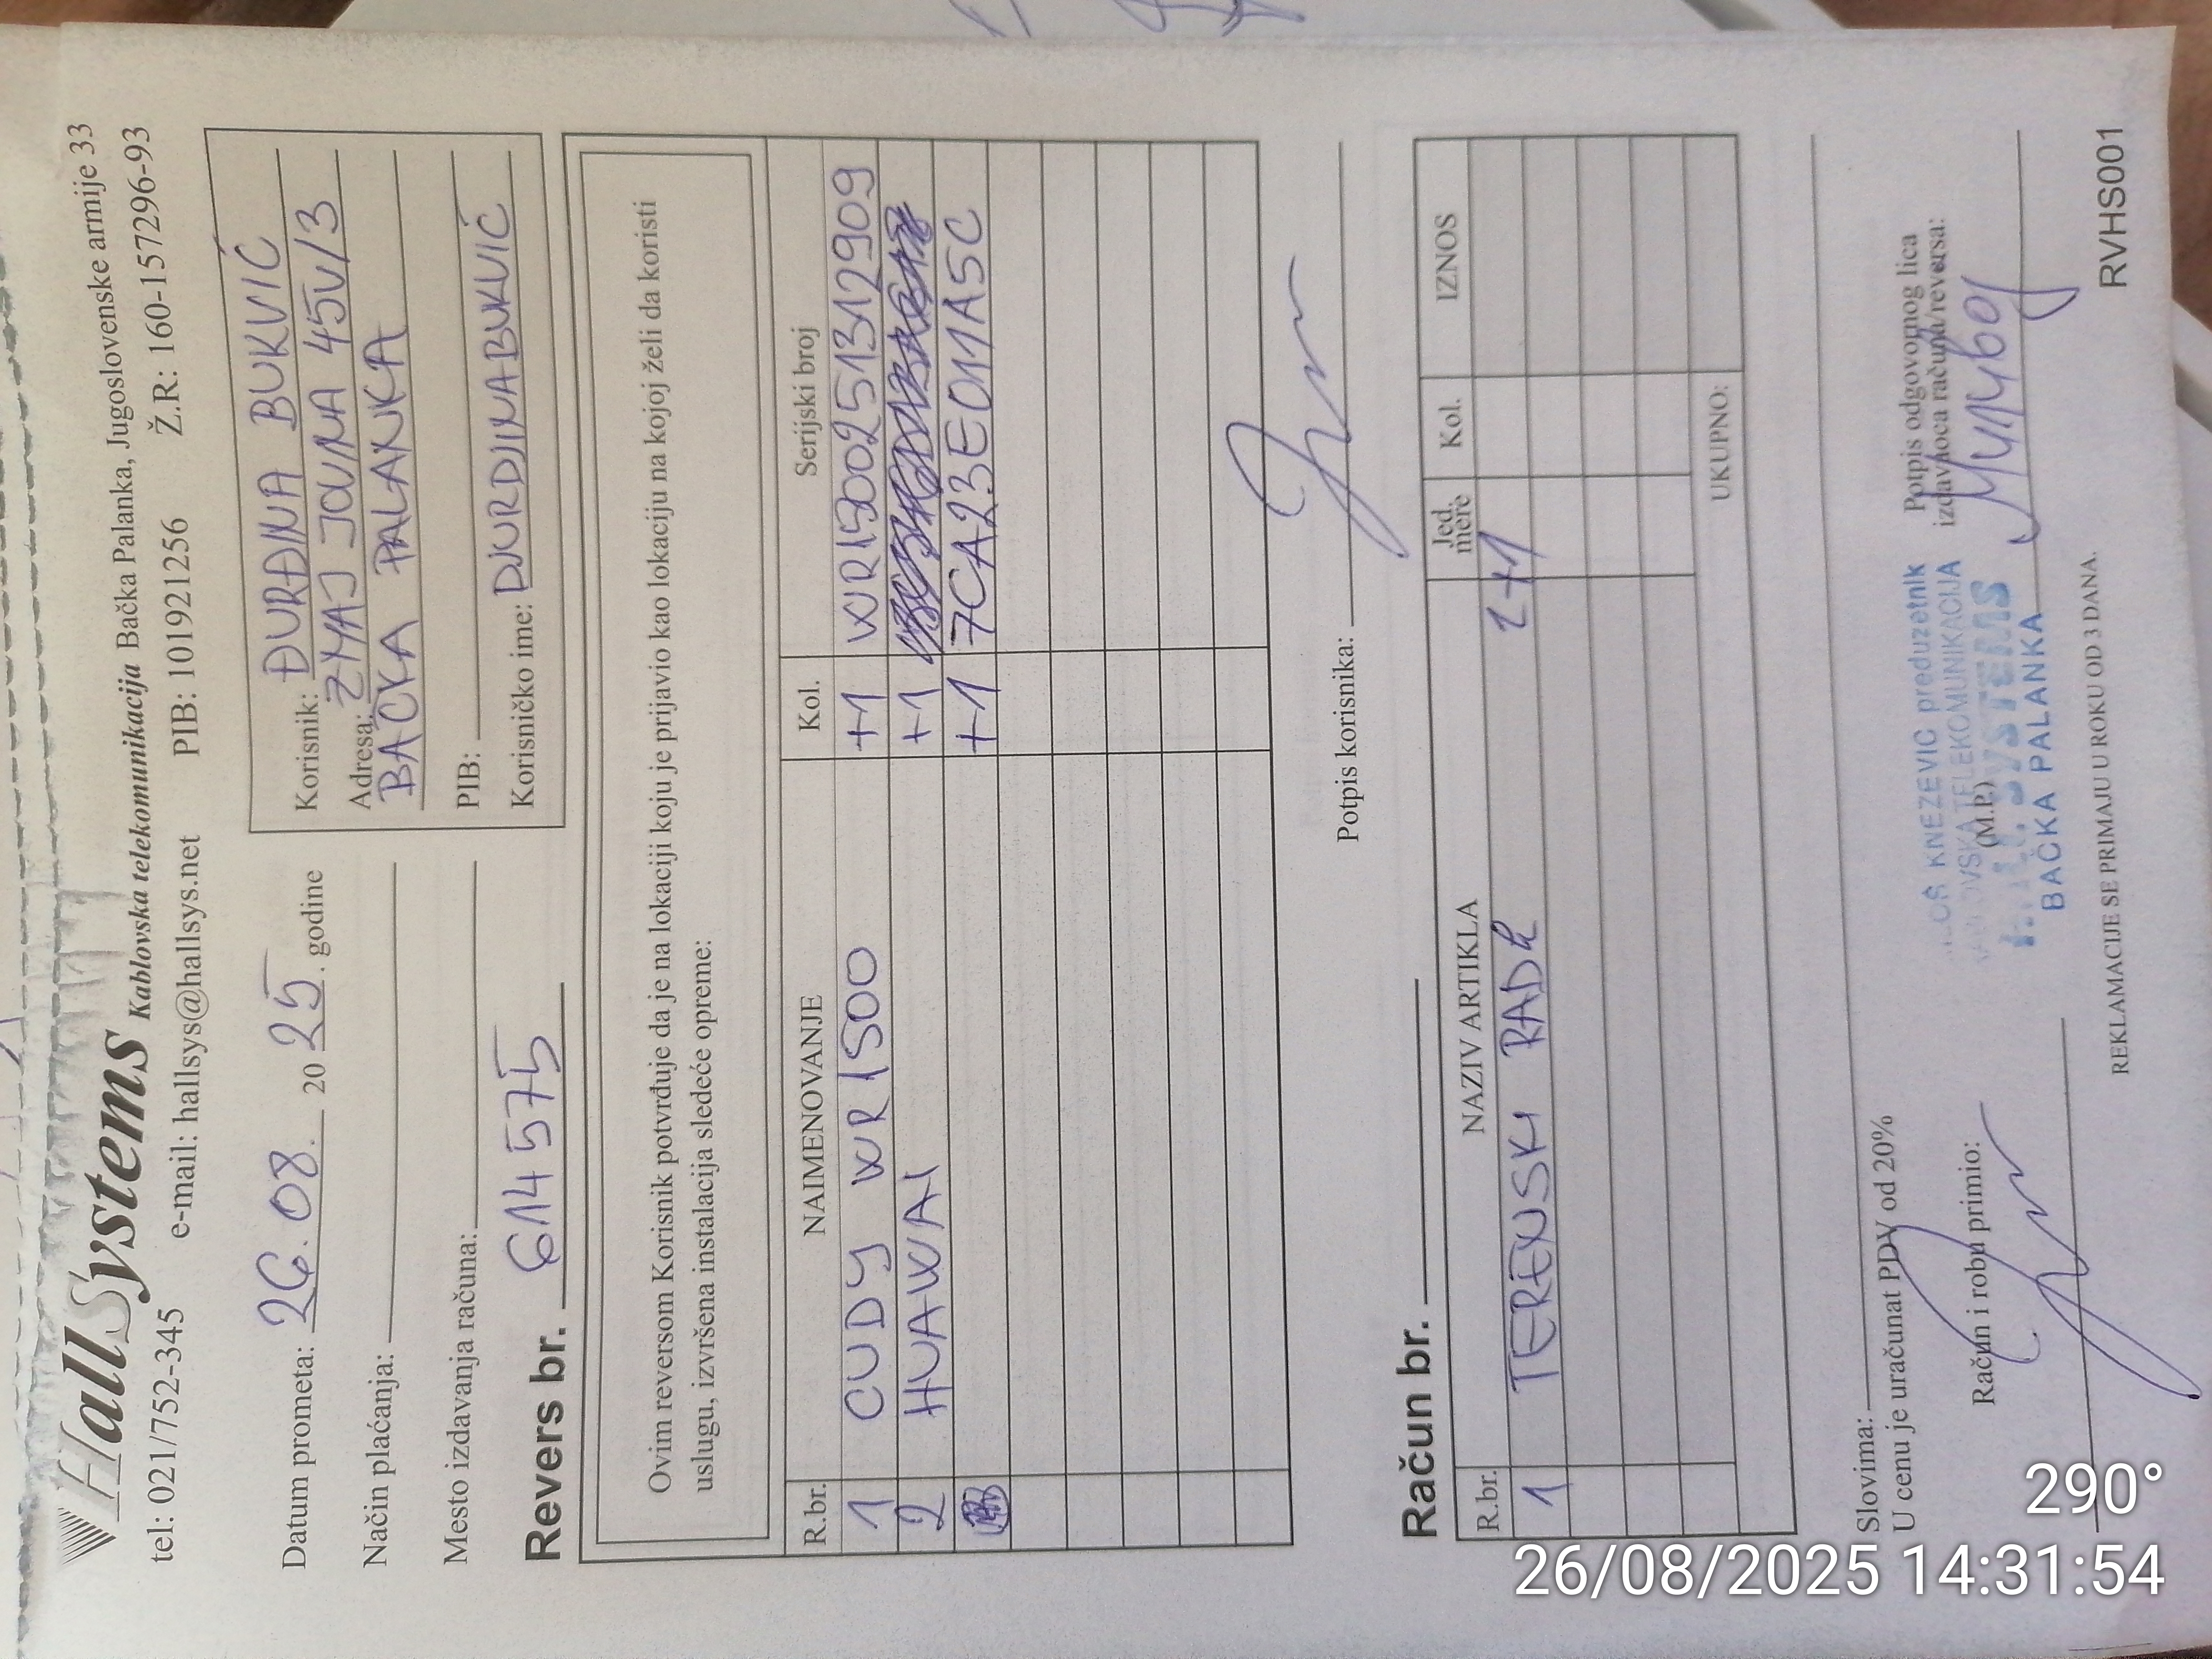 HallSystems Kablovska telekomunikacija Bačka Palanka, Jugoslovenske armije 33
tel: 021/752-345 e-mail: hallsys@hallsys.net PIB: 101921256 Ž.R: 160-157296-93
Datum prometa: 26.08. 2025. godine
Način plaćanja:
Mesto izdavanja računa:
Korisnik: ĐURĐINA BUKVIĆ
Adresa: ZMAJ JOVINA 45V/3
BAČKA PALANKA
PIB:
Korisničko ime: DJURDJINABUKVIĆ
Revers br. 614575
Ovim reversom Korisnik potvrđuje da je na lokaciji koju je prijavio kao lokaciju na kojoj želi da koristi
uslugu, izvršena instalacija sledeće opreme:
R.br. NAIMENOVANJE Kol. Serijski broj
1 CUDY WR1500 +1 WR1500251312909
2 HUAWAI +1
+1 7CA23E011A5C
Potpis korisnika:
Račun br.
R.br. NAZIV ARTIKLA Jed. mere Kol. IZNOS
1 TERENSKI RAD 1+1
UKUPNO:
Slovima:
U cenu je uračunat PDV od 20%
Račun i robu primio:
(M.P.)
KNEZEVIC preduzetnik
TELEKOMUNIKACIJA
SYSTEMS
BAČKA PALANKA
Potpis odgovornog lica
izdavaoca računa/reversa:
REKLAMACIJE SE PRIMAJU U ROKU OD 3 DANA.
RVHS001
290°
26/08/2025 14:31:54